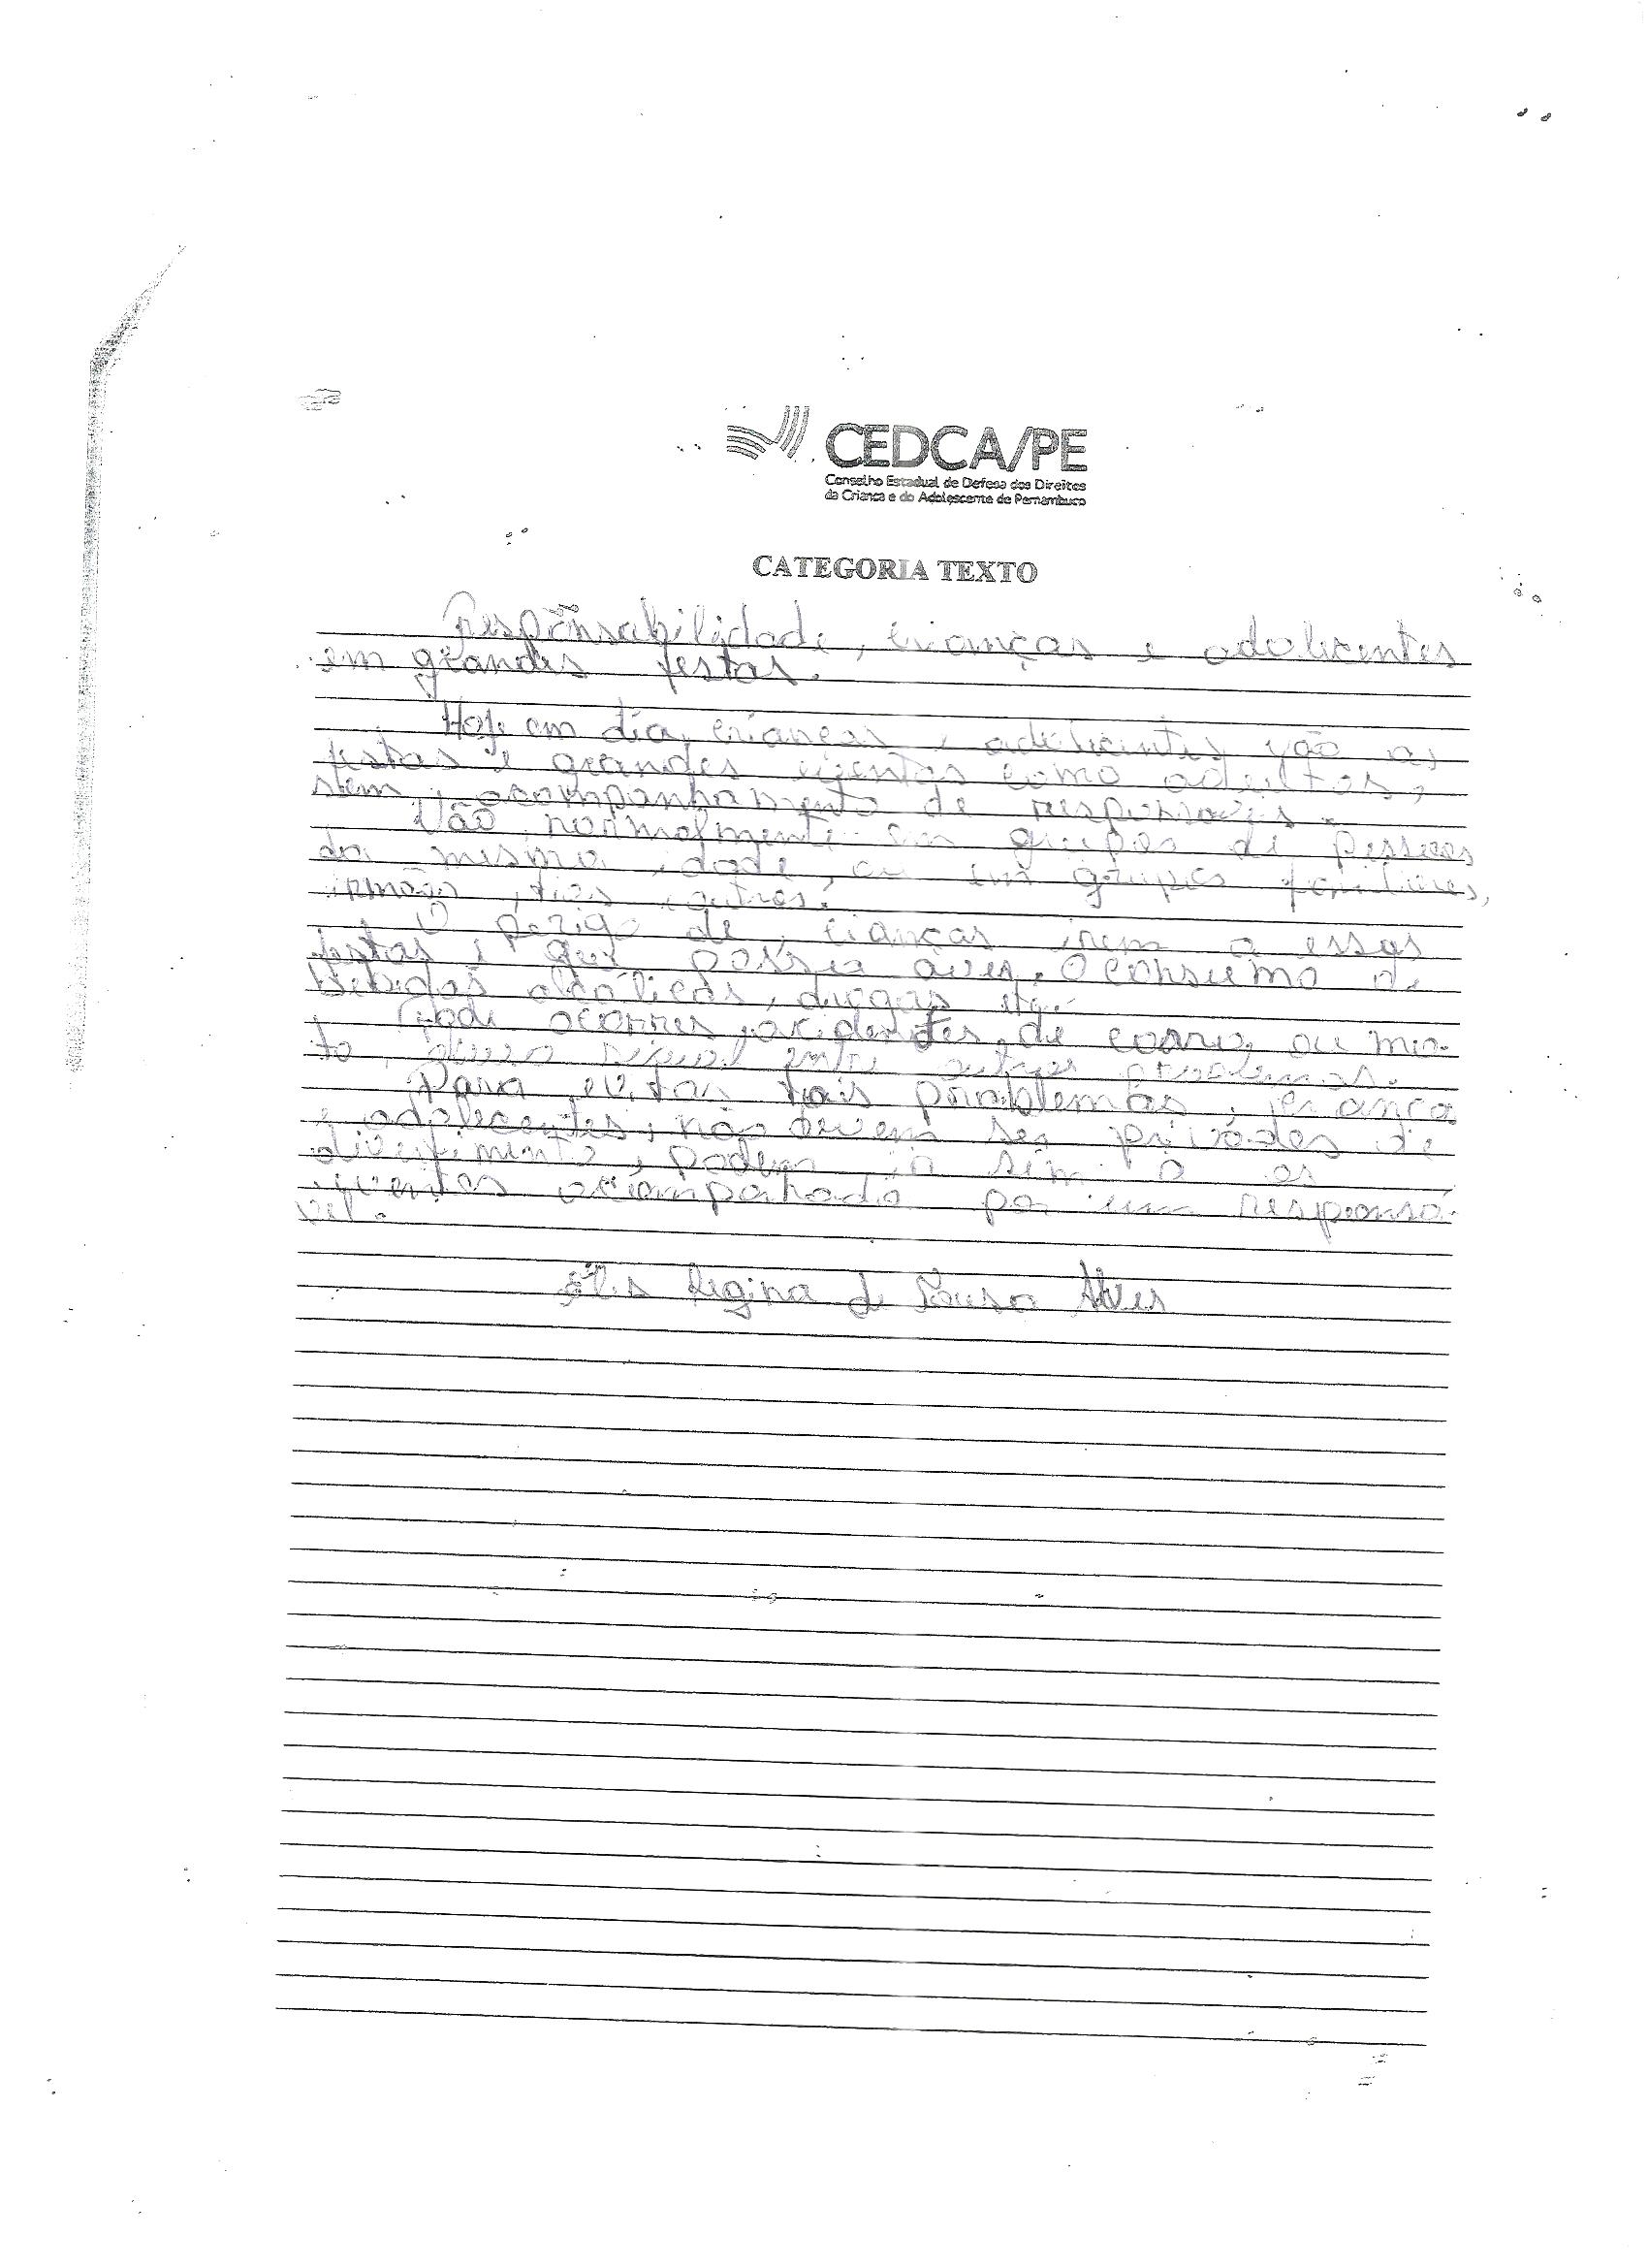 CEDCA/PE
Conselho Estadual de Defesa dos Direitos
da Criança e do Adolescente de Pernambuco
CATEGORIA TEXTO
Responsabilidade, crianças e adolecentes
em grandes festas.
Hoje em dia, crianças e adolecentes vão as
festas e grandes eventos como adultos,
sem acompanhamento de responsaveis.
Vão normalmente em grupos de pessoas
da mesma idade, ou em grupos familiares,
irmãos, tios e outros.
O perigo de crianças irem a essas
festas é que possa aver o consumo de
bebidas alcólicas, drogas etc.
Pode ocorrer acidentes de carro, ou mo-
to, abuso sexual entre outros problemas.
Para evitar tais problemas, criança
e adolecentes, não devem ser privádos de
divertimento, podem ir sim a os
eventos acompanhado por um responsá-
vel.
Élis Regina de Sousa Alves